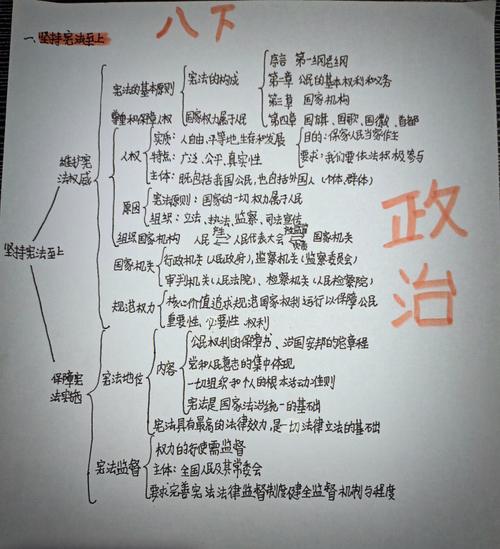 八下
一、坚持宪法至上
政治
坚持宪法至上
维护宪法权威
宪法的基本原则
宪法的构成
序言 第一章总纲
第二章 公民的基本权利和义务
第三章 国家机构
第四章 国旗、国歌、国徽、首都
国家权力属于人民
尊重和保障人权
人权
实质：人自由、平等地生存和发展
目的：保家人民当家作主
要求：我们要依法积极参与
特点：广泛、公平、真实性
主体：既包括我国公民，也包括外国人（个体、群体）
原因
宪法原则：国家的一切权力属于人民
组织：立法、执法、监察、司法宣传
组织国家机构 人民 产生 人民代表大会 国家机关
国家机关
行政机关（人民政府）、监察机关（监察委员会）
审判机关（人民法院）、检察机关（人民检察院）
规范权力
核心价值追求规范国家权利运行以保障公民
重要性、必要性、权利
保障宪法实施
宪法地位
内容
公民权利的保障书、治国安邦的总章程
党和人民意志的集中体现
一切组织和个人的根本活动准则
宪法是国家法治统一的基础
宪法具有最高的法律效力，是一切法律立法的基础
宪法监督
权力的行使需监督
主体：全国人民及其常委会
要求完善宪法法律监督制度健全监督机制与程度